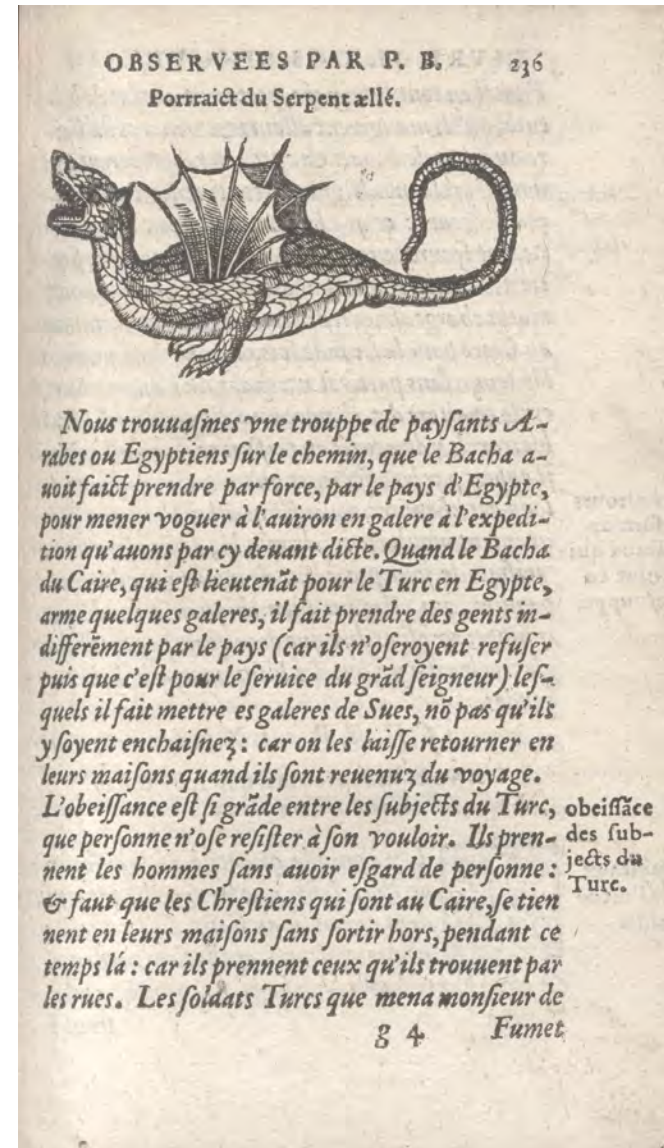 OBSERVEES PAR P. B. 236
Portraict du Serpent ællé.
Nous trouuaſmes vne trouppe de payſants A-
rabes ou Egyptiens ſur le chemin, que le Bacha a-
uoit faict prendre par force, par le pays d'Egypte,
pour mener voguer à l'auiron en galere à l'expedi-
tion qu'auons par cy deuant dicte. Quand le Bacha
du Caire, qui eſt lieutenãt pour le Turc en Egypte,
arme quelques galeres, il fait prendre des gents in-
differẽment par le pays (car ils n'oſeroyent refuſer
puis que c'eſt pour le ſeruice du grãd ſeigneur) leſ-
quels il fait mettre es galeres de Sues, nõ pas qu'ils
y ſoyent enchaiſnez: car on les laiſſe retourner en
leurs maiſons quand ils ſont reuenuz du voyage.
L'obeiſſance eſt ſi grãde entre les ſubjects du Turc,
que perſonne n'oſe reſiſter à ſon vouloir. Ils pren-
nent les hommes ſans auoir eſgard de perſonne:
& faut que les Chreſtiens qui ſont au Caire, ſe tien
nent en leurs maiſons ſans ſortir hors, pendant ce
temps lá: car ils prennent ceux qu'ils trouuent par
les rues. Les ſoldats Turcs que mena monſieur de
obeiſſãce
des ſub-
jects du
Turc.
g 4 Fumet